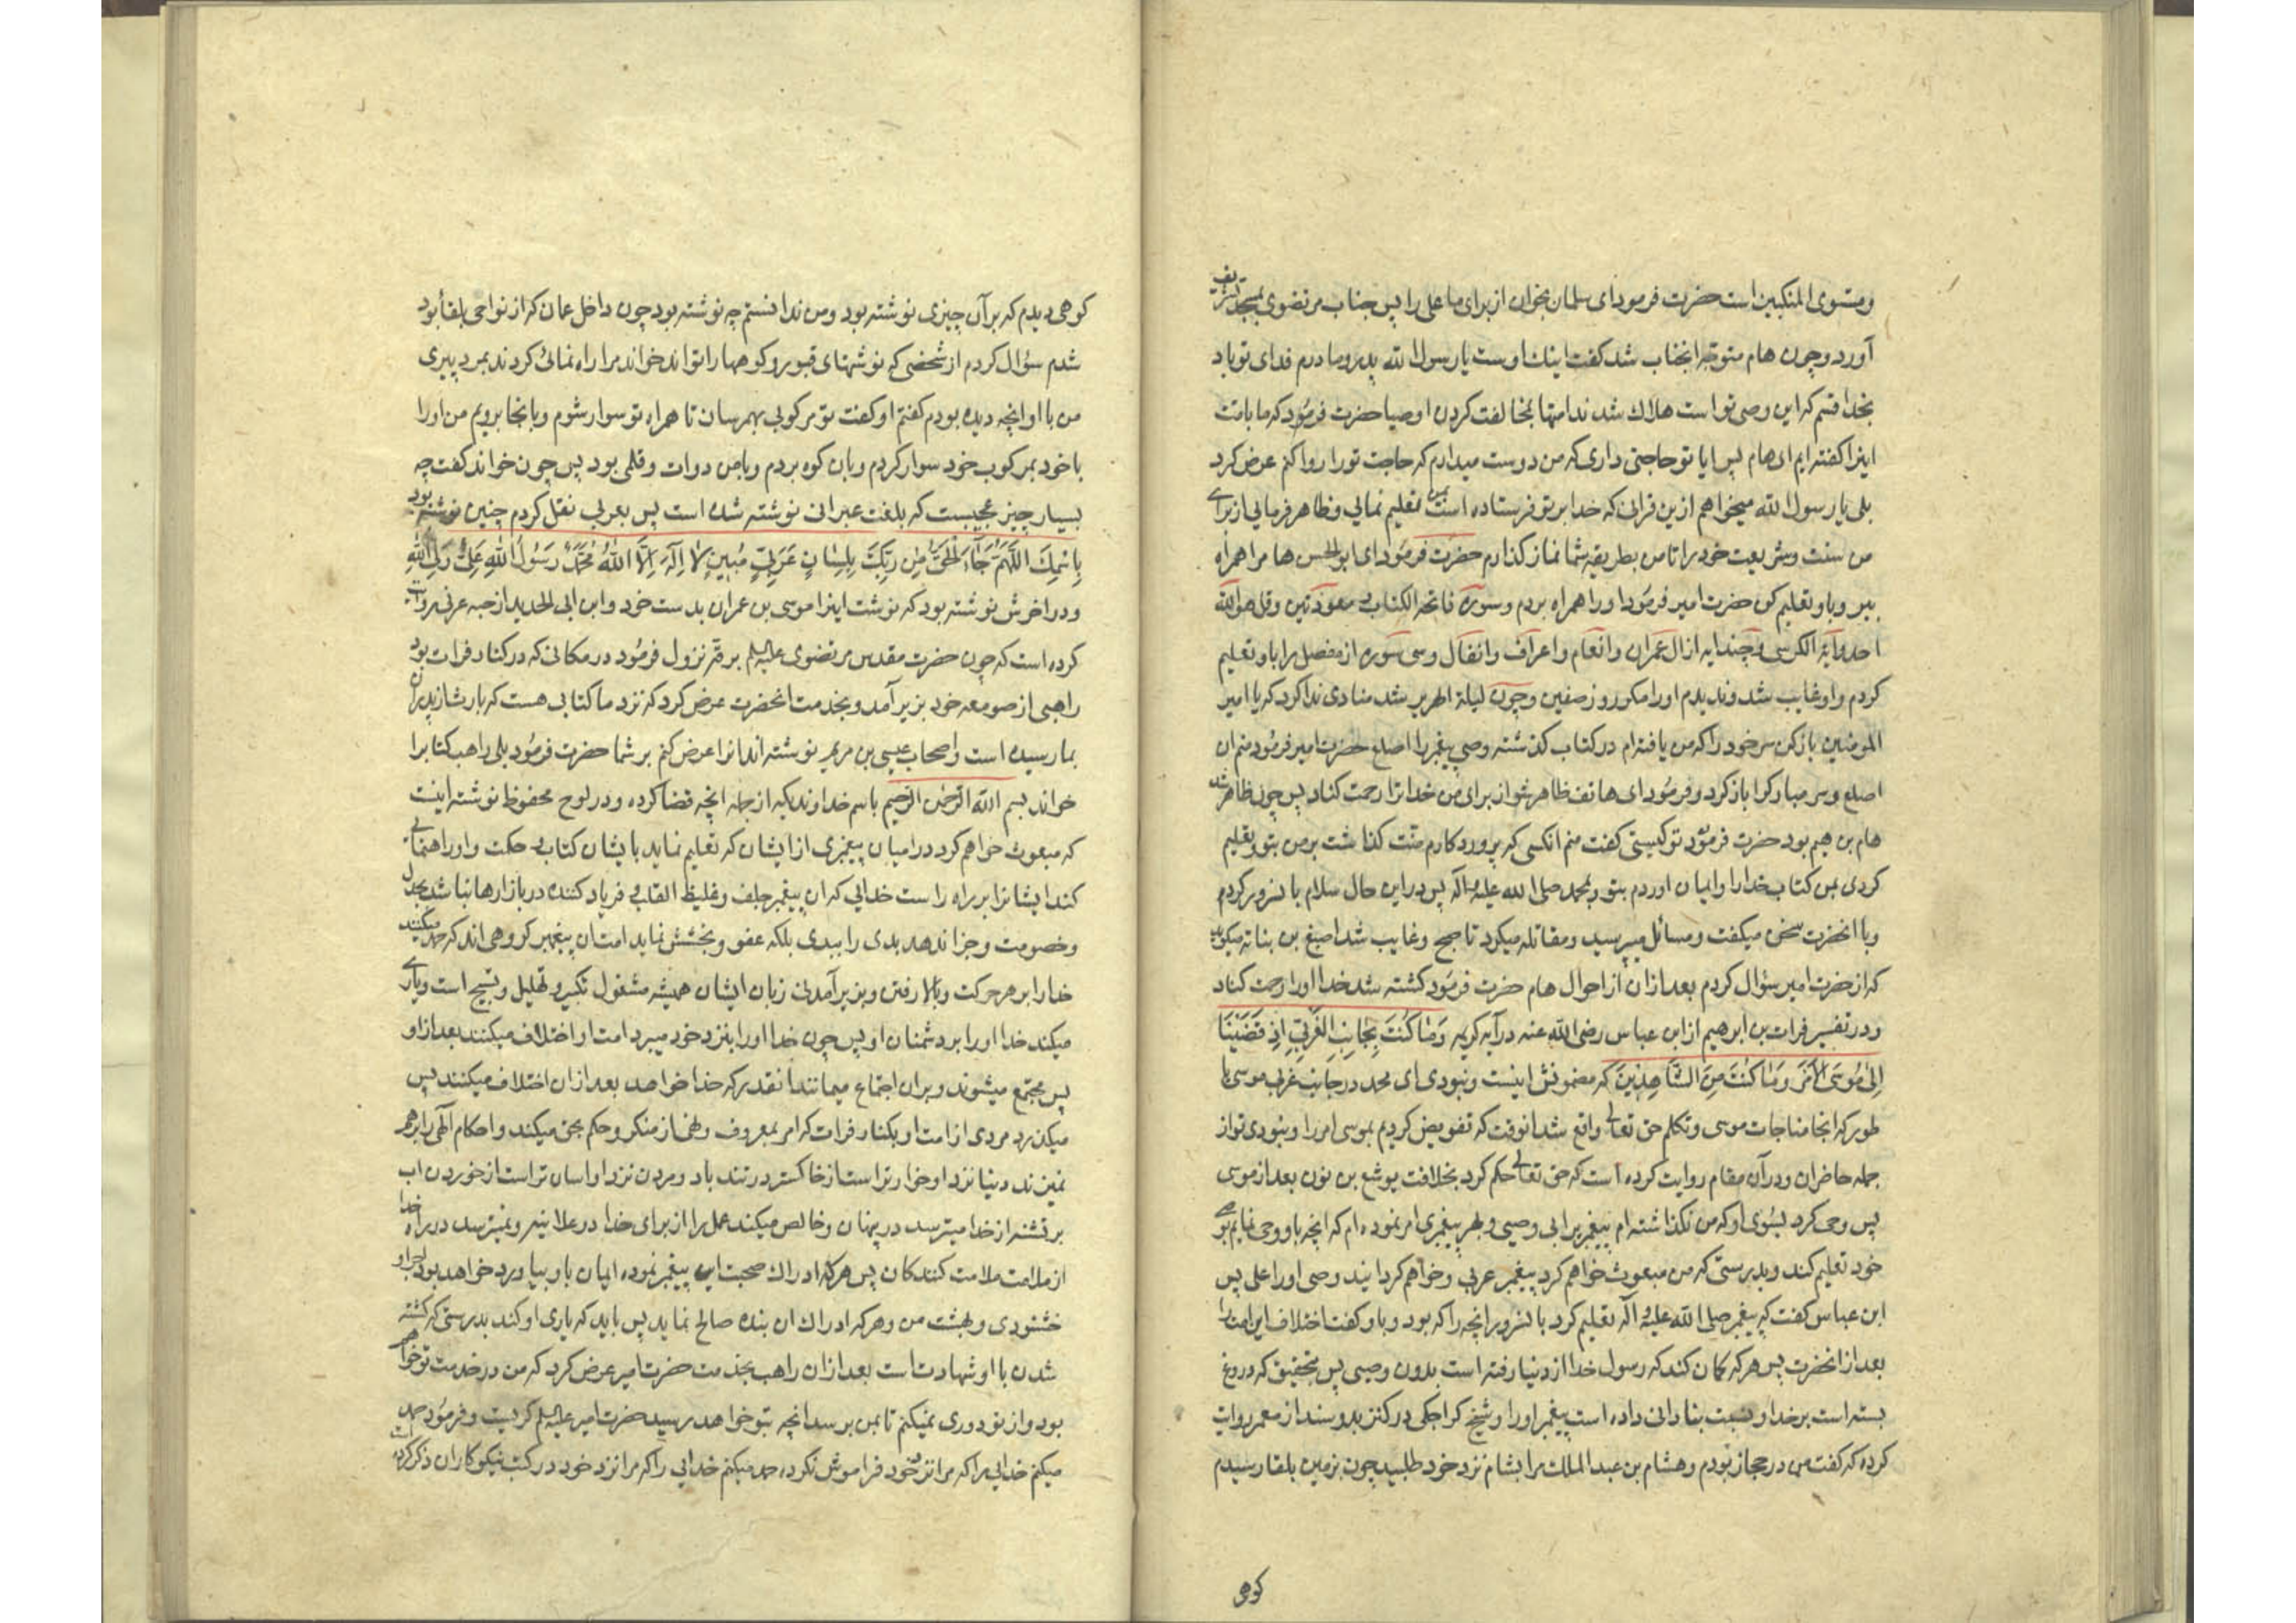 ومستوی المنکبین است حضرت فرمود ای سلمان بخوان از برای ما علی را پس جناب مرتضوی بمسجد شریف
آورد و چون هام متوجه انجناب شد کفت اینک اوست یا رسول الله پدر و مادرم فدای تو باد
بخدا قسم که این وصی تو است هلاک شدند امتها بمخالفت کردن اوصیا حضرت فرمود که ما بامت
اینرا کفته ایم ای هام پس ایا تو حاجتی داری که من دوست میدارم که حاجت تو را روا کنم عرض کرد
بلی یا رسول الله میخواهم از ین قرانی که خدا بر تو فرستاده است بمن تعلیم نمایی و ظاهر فرمایی از برای
من سنت و شریعت خود را تا من بطریقه شما نماز کذارم حضرت فرمود ای ابو الحسن هام را همراه
ببر و باو تعلیم کن حضرت امیر فرمود او را همراه بردم و سوره فاتحة الکتاب و معوذتین و قل هو الله
احد و آیة الکرسی و چند ایه از ال عمران و انعام و اعراف و انفال و سی سوره از مفصل را باو تعلیم
کردم و او غایب شد و ندیدم او را مکر روز صفین و چون لیلة الهریر شد منادی ندا کرد که یا امیر
المومنین باز کن سر خود را که من یافته ام در کتاب کذشته وصی پیغمبر را اصلع حضرت امیر فرمود منم ان
اصلع و سر مبارک را باز کرد و فرمود ای هاتف ظاهر شو از برای من خدا ترا رحمت کناد پس چون ظاهر شد
هام بن هیم بود حضرت فرمود تو کیستی کفت منم انکسی که پروردکارم منت کذاشت بر من بتو و تعلیم
کردی بمن کتاب خدا را و ایمان اوردم بتو و بمحمد صلی الله علیه و اله پس در این حال سلام بانسرور کردم
و با انحضرت سخن میکفت و مسائل میپرسید و مقاتله میکرد تا صبح و غایب شد اصبغ بن بناته میکوید
که از حضرت امیر سؤال کردم بعد از ان از احوال هام حضرت فرمود کشته شد خدا او را رحمت کناد
و در تفسیر فرات بن ابرهیم از ابن عباس رضی الله عنه در آیه کریمه وَمٰا کُنْتَ بِجٰانِبِ الْغَرْبِيِّ اِذْ قَضَیْنٰا
اِلیٰ مُوسَی الْاَمْرَ وَمٰا کُنْتَ مِنَ الشّٰاهِدِینَ که مضمونش اینست و نبودی ای محمد در جانب غربی موسی یا
طور که انجا مناجات موسی و تکلم حق تعالی واقع شد انوقت که تفویض کردیم بموسی امر را و نبودی تو از
جمله حاضران و در آن مقام روایت کرده است که حق تعالی حکم کرد بخلافت یوشع بن نون بعد از موسی
پس وحی کرد بسوی او که من نکذاشته ام پیغمبریرا بی وصیی و بهر پیغمبری امر نموده ام که انچه باو وحی نمایم بوصی
خود تعلیم کند و بدرستی که من مبعوث خواهم کرد پیغمبر عربی و خواهم کردانید وصی او را علی پس
ابن عباس کفت که پیغمبر صلی الله علیه و آله تعلیم کرد بانسرور انچه را که بود و باو کفت اختلاف این امت را
بعد از انحضرت پس هر که کمان کند که رسول خدا از دنیا رفته است بدون وصیی پس بتحقیق که دروغ
بسته است بر خدا و نسبت بنادانی داده است پیغمبر او را و شیخ کراجکی در کنز بدو سند از معمر روایت
کرده که کفت من در حجاز بودم و هشام بن عبد الملک مرا بشام نزد خود طلبید چون بزمین بلقا رسیدم
کوهی
کوهی دیدم که بر آن چیزی نوشته بود و من ندانستم چه نوشته بود چون داخل عمان که از نواحی بلقا بود
شدم سؤال کردم از شخصی که نوشتهای قبور و کوهها را تواند خواند مرا راه نمائی کردند بمرد پیری
من با او انچه دیده بودم کفتم او کفت تو مرکوبی بهم رسان تا همراه تو سوار شوم و بانجا برویم من او را
با خود بمرکوب خود سوار کردم و بان کوه بردم و با من دوات و قلمی بود پس چون خواند کفت چه
بسیار چیز عجیبست که بلغت عبرانی نوشته شده است پس بعربی نقل کردم چنین نوشته بود
بِاسْمِكَ اللّٰهُمَّ جٰآءَ الْحَقُّ مِنْ رَبِّكَ بِلِسٰانٍ عَرَبِيٍّ مُبِينٍ لٰا اِلٰهَ اِلَّا اللّٰهُ مُحَمَّدٌ رَسُولُ اللّٰهِ عَلِيٌّ وَلِيُّ اللّٰهِ
و در اخرش نوشته بود که نوشت اینرا موسی بن عمران بدست خود و ابن ابی الحدید از حبه عرنی روایت
کرده است که چون حضرت مقدس مرتضوی علیه السلم برقه نزول فرمود در مکانی که در کنار فرات بود
راهبی از صومعه خود بزیر آمد و بخدمت انحضرت عرض کرد که نزد ما کتابی هست که بارث از پدران
بما رسیده است و اصحاب عیسی بن مریم نوشته اند انرا عرض کنم بر شما حضرت فرمود بلی راهب کتاب را
خواند بسم الله الرحمن الرحیم باسم خداوندیکه از جمله انچه قضا کرده و در لوح محفوظ نوشته اینست
که مبعوث خواهم کرد در امیان پیغمبری از ایشان که تعلیم نماید بایشان کتاب و حکمت و او راهنمایی
کند ایشانرا بر راه راست خدایی که ان پیغمبر جلف و غلیظ القلب و فریاد کننده در بازارها نباشد بجدل
و خصومت و جزا ندهد بدی را ببدی بلکه عفو و بخشش نماید امت ان پیغمبر کروهی اند که حمد میکنند
خدا را بر هر حرکت و بالا رفتن و بزیر آمدن زبان ایشان همیشه مشغول تکبیر و تهلیل و تسبیح است و یاری
میکند خدا او را بر دشمنان او پس چون خدا او را بنزد خود میبرد امت او اختلاف میکنند بعد از او
پس مجتمع میشوند و بران اجتماع میمانند انقدر که خدا خواهد بعد از ان اختلاف میکنند پس
میکذرد مردی از امت او بکنار فرات که امر بمعروف و نهی از منکر و حکم بحق میکند و احکام الهی را برهم
نمیزند دنیا نزد او خوارتر است از خاکستر در تند باد و مردن نزد او اسان تر است از خوردن اب
بر تشنه از خدا میترسد در پنهان و خالص میکند عمل را از برای خدا در علانیه و نمیترسد در راه خدا
از ملامت ملامت کنندکان پس هر که ادراک صحبت این پیغمبر نموده ایمان باو بیاورد خواهد بود
خشنودی و بهشت من و هر که ادراک ان بنده صالح نماید پس باید که یاری او کند بدرستی که کشته
شدن با او شهادت است بعد از ان راهب بخدمت حضرت امیر عرض کرد که من در خدمت تو خواهم
بود و از تو دوری نمیکنم تا بمن برسد انچه بتو خواهد رسید حضرت امیر علیه السلم کریست و فرمود حمد
میکنم خدایی را که مرا نزد خود فراموش نکرده حمد میکنم خدایی را که مرا نزد خود در کتب نیکوکاران ذکر کرده است